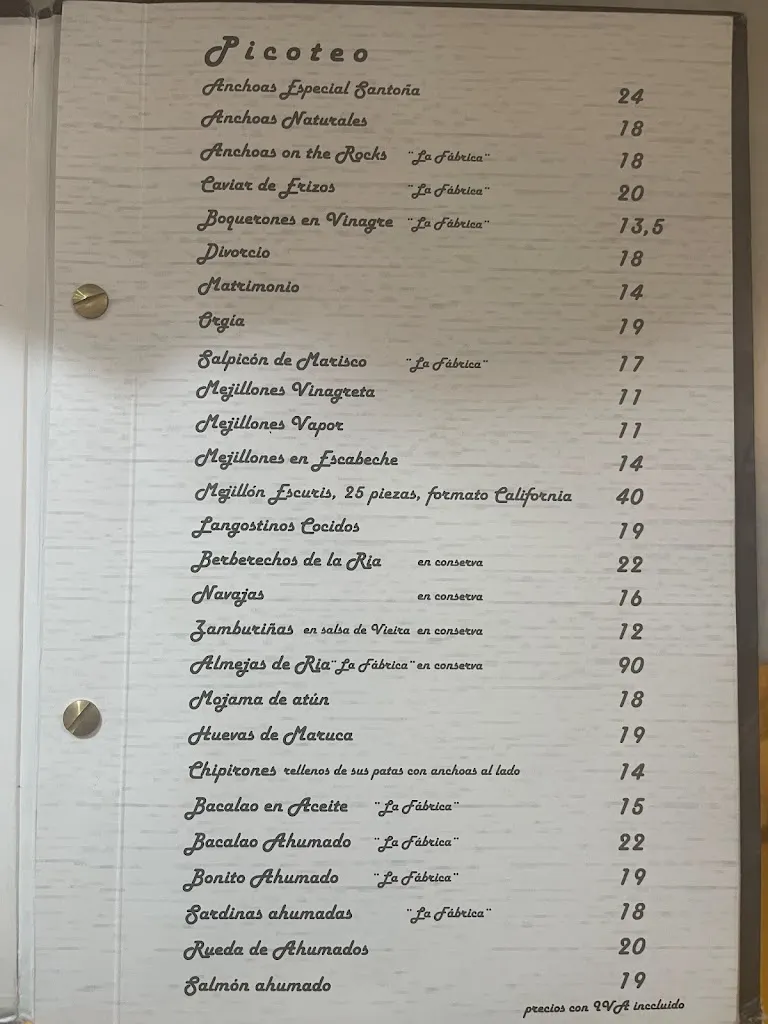 Picoteo
Anchoas Especial Santoña 24
Anchoas Naturales 18
Anchoas on the Rocks ¨La Fábrica¨ 18
Caviar de Erizos ¨La Fábrica¨ 20
Boquerones en Vinagre ¨La Fábrica¨ 13,5
Divorcio 18
Matrimonio 14
Orgía 19
Salpicón de Marisco ¨La Fábrica¨ 17
Mejillones Vinagreta 11
Mejillones Vapor 11
Mejillones en Escabeche 14
Mejillón Escuris, 25 piezas, formato California 40
Langostinos Cocidos 19
Berberechos de la Ria en conserva 22
Navajas en conserva 16
Zamburiñas en salsa de Vieira en conserva 12
Almejas de Ria ¨La Fábrica¨ en conserva 90
Mojama de atún 18
Huevas de Maruca 19
Chipirones rellenos de sus patas con anchoas al lado 14
Bacalao en Aceite ¨La Fábrica¨ 15
Bacalao Ahumado ¨La Fábrica¨ 22
Bonito Ahumado ¨La Fábrica¨ 19
Sardinas ahumadas ¨La Fábrica¨ 18
Rueda de Ahumados 20
Salmón ahumado 19
precios con IVA inccluido